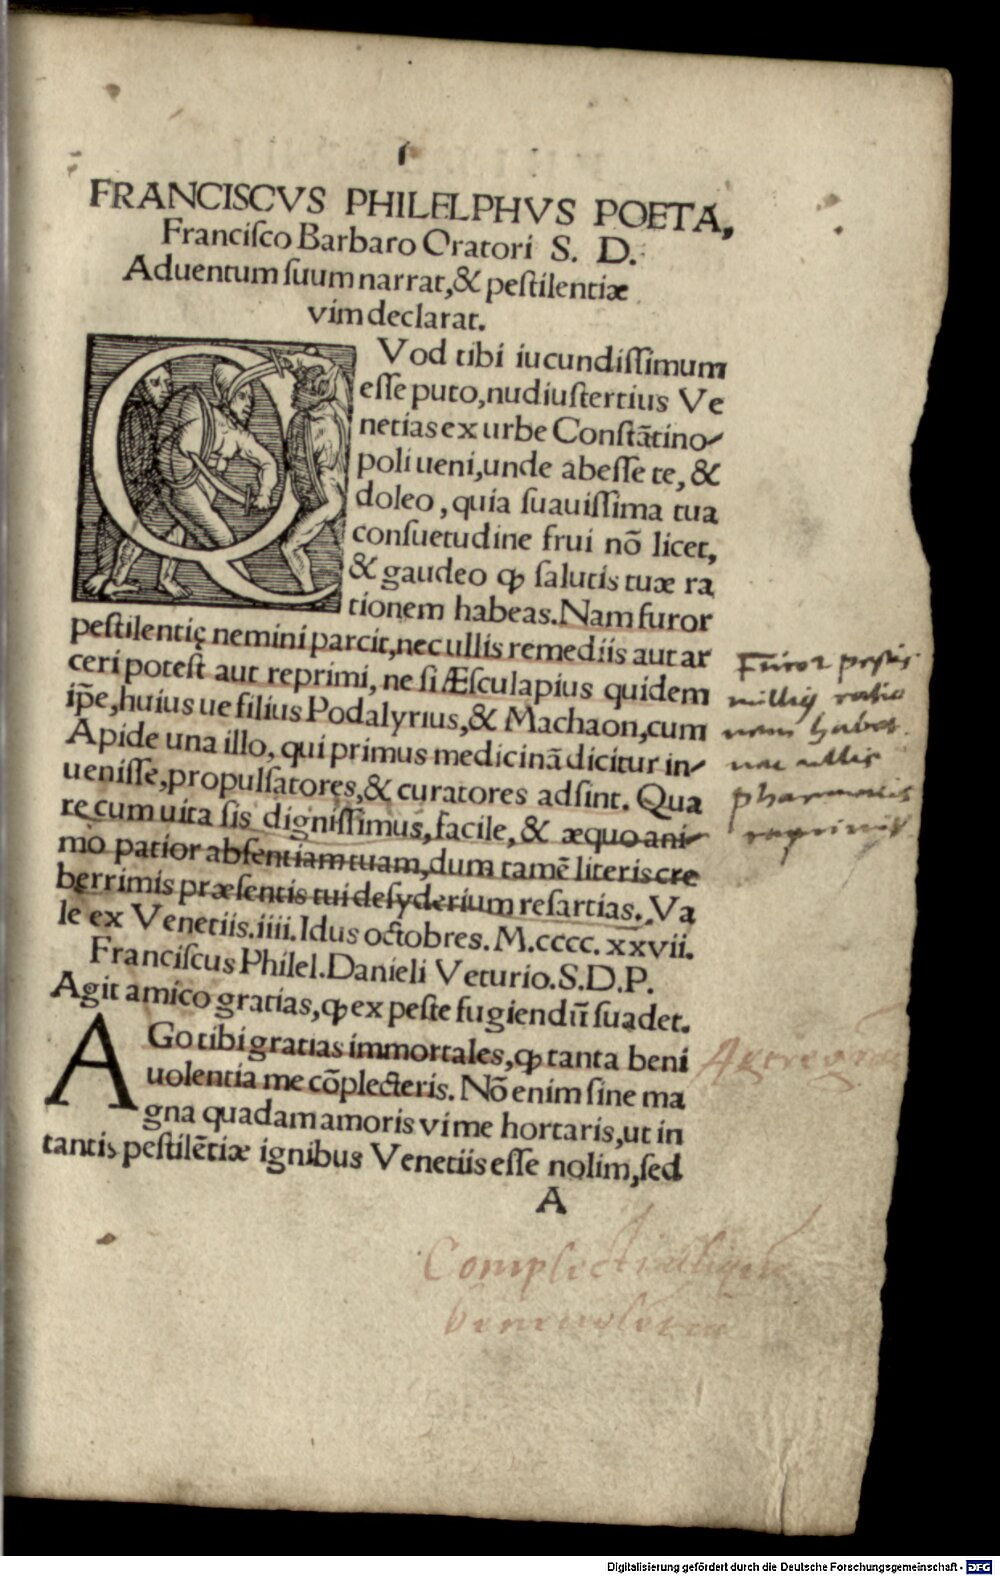 I
FRANCISCVS PHILELPHVS POETA,
Franciſco Barbaro Oratori S. D.
Aduentum ſuum narrat, & peſtilentiæ
vim declarat.
QVod tibi iucundiſſimum
eſſe puto, nudiuſtertius Ve
netias ex urbe Conſtãtino-
poli ueni, unde abeſſe te, &
doleo, quia ſuauiſſima tua
conſuetudine frui nõ licet,
& gaudeo ꝙ ſalutis tuæ ra
tionem habeas. Nam furor
peſtilentię nemini parcit, nec ullis remediis aut ar
ceri poteſt aut reprimi, ne ſi Æſculapius quidem
ip̃e, huius ue filius Podalyrius, & Machaon, cum
Apide una illo, qui primus medicinã dicitur in-
ueniſſe, propulſatores, & curatores adſint. Qua
re cum uita ſis digniſſimus, facile, & æquo ani-
mo patior abſentiam tuam, dum tamẽ literis cre
berrimis præſentis tui deſyderium reſartias. Va
le ex Venetiis. iiii. Idus octobres. M.cccc. xxvii.
Franciſcus Philel. Danieli Veturio. S. D. P.
Agit amico gratias, ꝙ ex peſte fugiendũ ſuadet.
AGo tibi gratias immortales, ꝙ tanta beni
uolentia me cõplecteris. Nõ enim ſine ma
gna quadam amoris vi me hortaris, ut in
tantis peſtilẽtiæ ignibus Venetiis eſſe nolim, ſed
A
Furor peſtis
ratio
nem habet
nec ullis
pharmacis
Complecti aliquem
beneuolentia
Digitalisierung gefördert durch die Deutsche Forschungsgemeinschaft - DFG